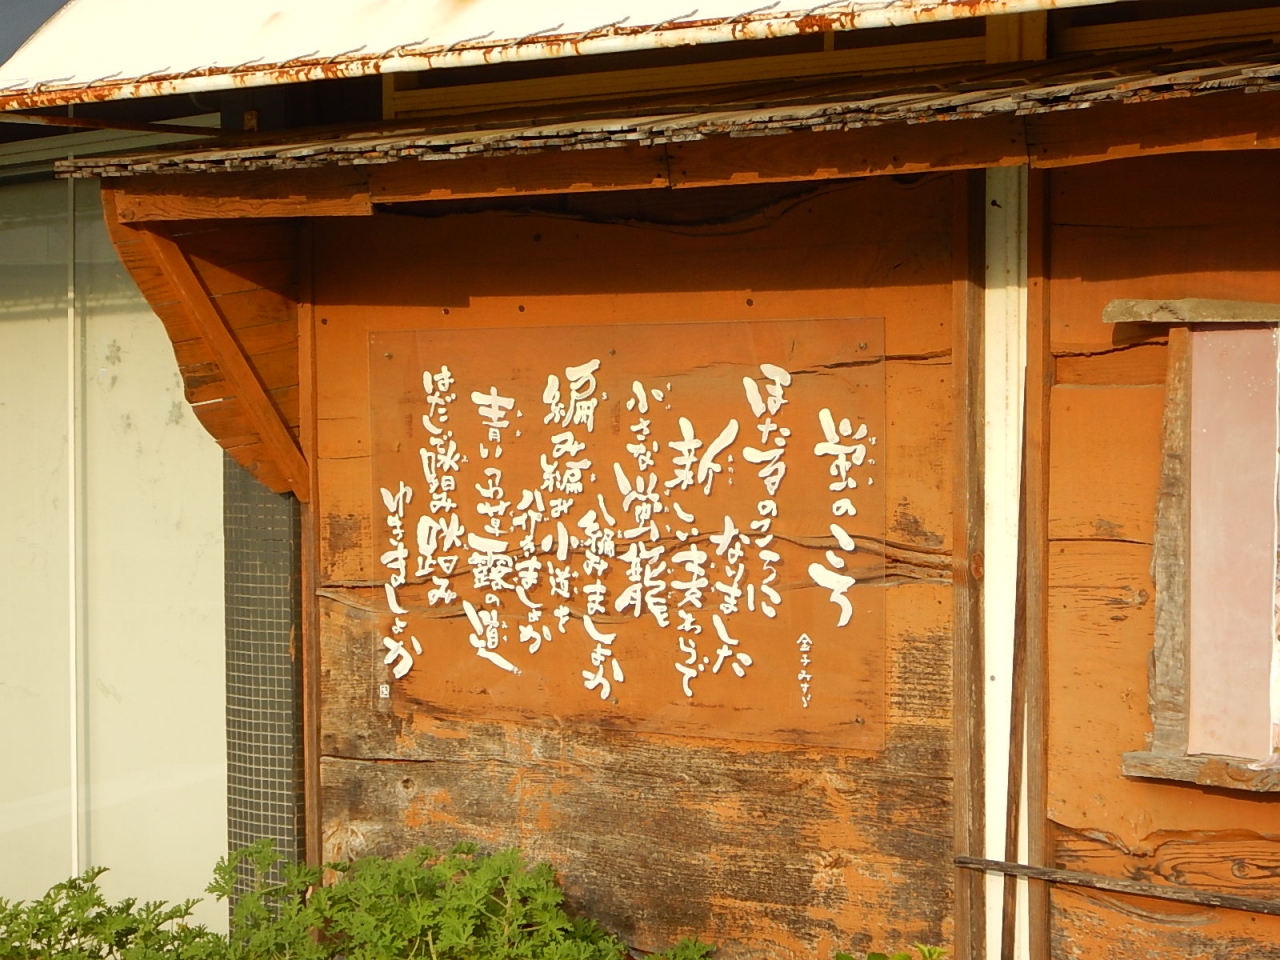 蛍のころ
金子みすゞ
ほたるのころに
なりました
新しい麦わらで
小さな螢籠
編みましょか
編み編み小道を
ゆきましょか
青いつゆ草露の道
はだしで踏み踏み
ゆきましょか